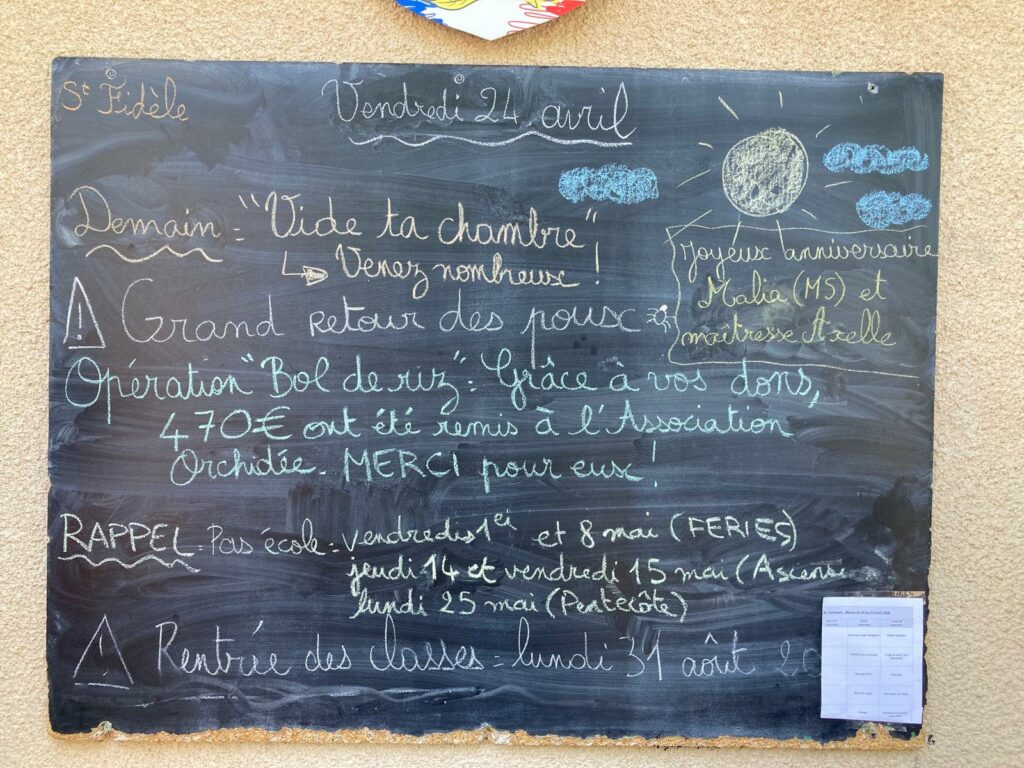 St Fidèle
Vendredi 24 avril
Demain = "Vide ta chambre"!
Venez nombreux !
Joyeux anniversaire
Malia (MS) et
maîtresse Axelle
Grand retour des poux
Opération "Bol de riz" = Grâce à vos dons,
470€ ont été remis à l'Association
Orchidée. MERCI pour eux !
RAPPEL = Pas école = vendredis 1er et 8 mai (FERIES)
jeudi 14 et vendredi 15 mai (Ascensi
lundi 25 mai (Pentecôte)
Rentrée des classes = lundi 31 août 20